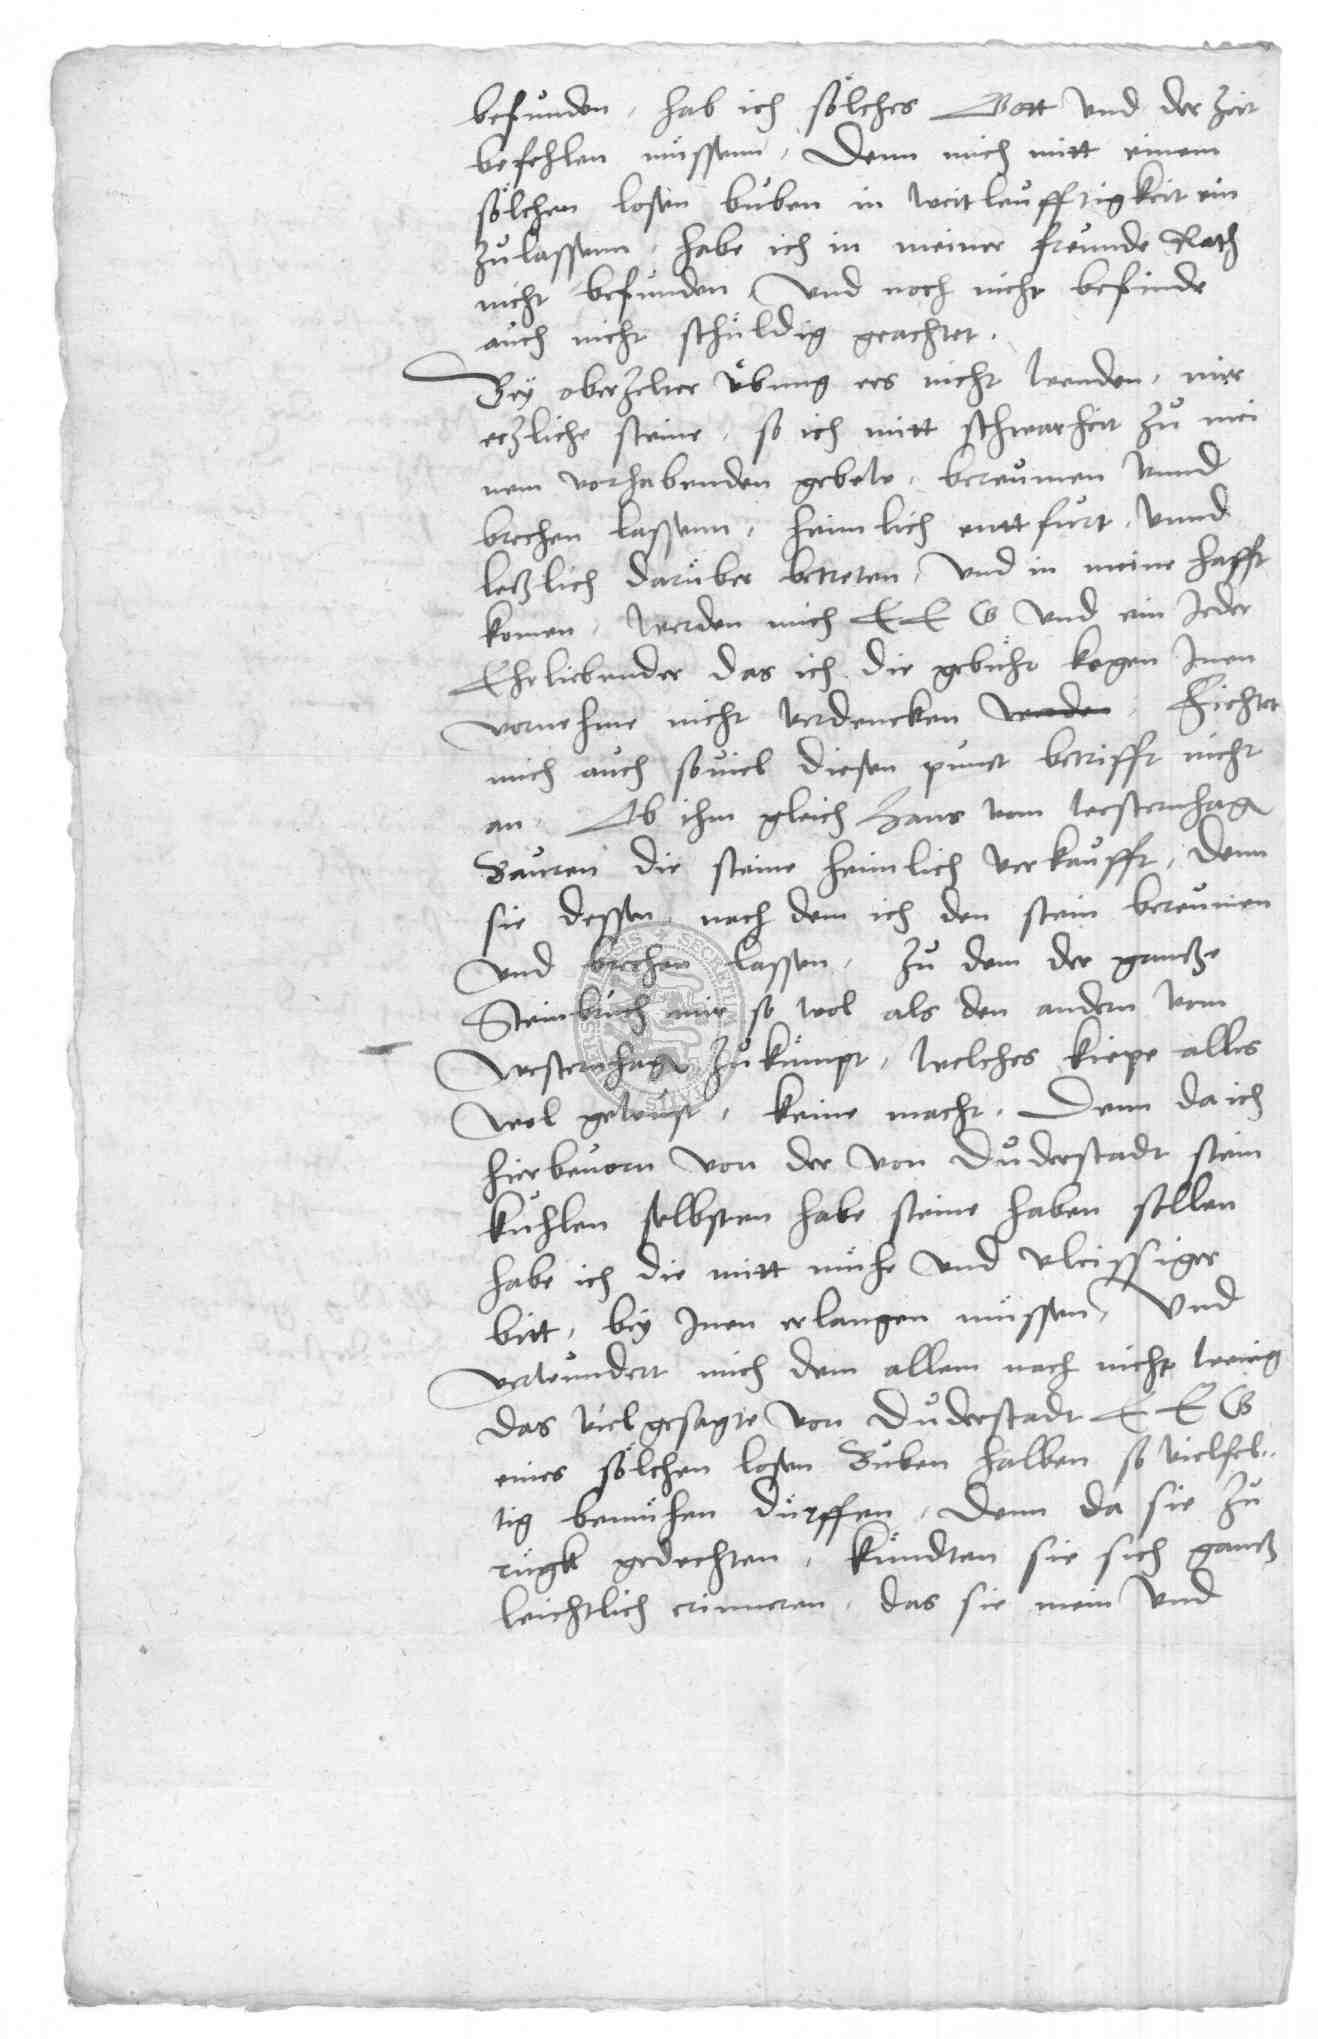 befunden, hab ich sölches Gott vnd der Zeit
befehlen müssenn, Denn mich mitt einem
sölchen losen buben in weitleufftigkeit ein
zulassenn, habe ich in meiner freunde Rath
nicht befunden, vnd noch nicht befinde
auch nicht schüldig geachtet.
Bey oberzelter übung ers nicht wenden, mir
etzliche steine, so ich mitt schwarheit zu mei
nem vorhabenden gebew, bereumen vnnd
brechen lassenn, heimlich enttfürt, vnnd
letzlich darüber betreten, vnd in meine hafft
komen, werden mich E E G vnd ein Jeder
Ehrliebender das ich die gebühr kegen Jnen
vornehme nicht verdencken werden, Fichtet
mich auch souiel diesen punct betrifft nicht
an, Ob ihm gleich Hans vom westernhag
Bauren die steine heimlich verkaufft, Denn
sie dessen, nach dem ich den stein bereumen
vnd brechen lassen, zu dem der gantze
Steinbruch mir so wol als den andern vom
westernhag zukumpt, welches Kiepe alles
wol gewust, keine macht, Denn da ich
hierbeuorn von der von Duderstadt stein
kuhlen selbsten habe steine haben sollen
habe ich die mitt mühe vnd vleissiger
bitt, bey Jnen erlangen müssen, Vnd
verwundert mich dem allem nach nicht wenig
das viel gesagte von Duderstadt E E G
eines sölchen losen Buben halben so vielfel-
tig bemühen dürffen, Denn da sie zu
rugk gedechten, kündten sie sich gantz
leichtlich erinneren, das sie mein vnd